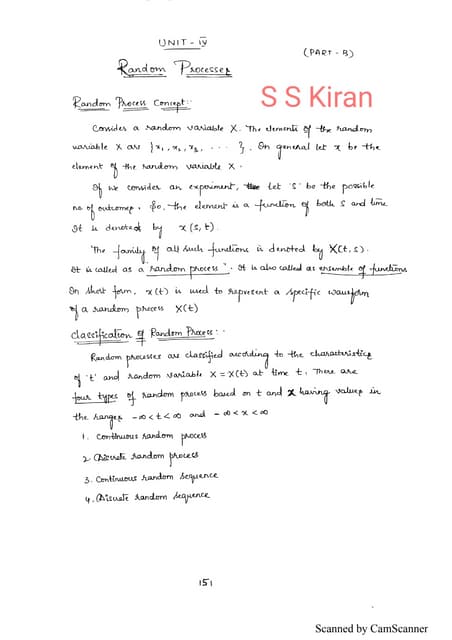 UNIT - IV
(PART - B)
Random Processes
S S Kiran
Random Process Concept:-
Consider a random variable X. The elements of the random
variable X are {x1, x2, x3, .... }. In general let x be the
element of the random variable X.
If we consider an experiment, Let 'S' be the possible
no. of outcomes. So, the element is a function of both S and time
It is denoted by x(s, t).
The family of all such functions is denoted by X(t, s).
It is called as a "random process". It is also called as ensemble of functions
In short form, x(t) is used to represent a specific waveform
of a random process X(t)
Classification of Random Process:-
Random processes are classified according to the characteristics
of 't' and random variable X = X(t) at time t. There are
four types of random process based on t and x having values in
the ranges -∞<t<∞ and -∞<x<∞
1. Continuous random process
2. Discrete random process
3. Continuous random sequence
4. Discrete random sequence
151
Scanned by CamScanner